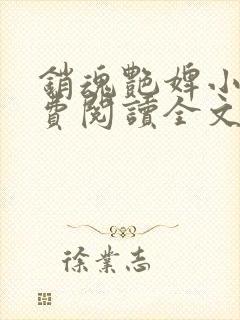 銷魂艷婢小
費閱讀全文
徐業志